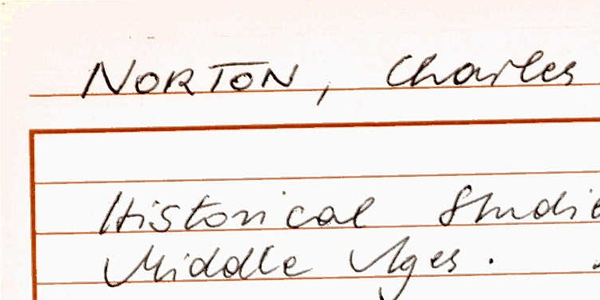 NORTON, Charles
Historical Studie
Middle Ages.